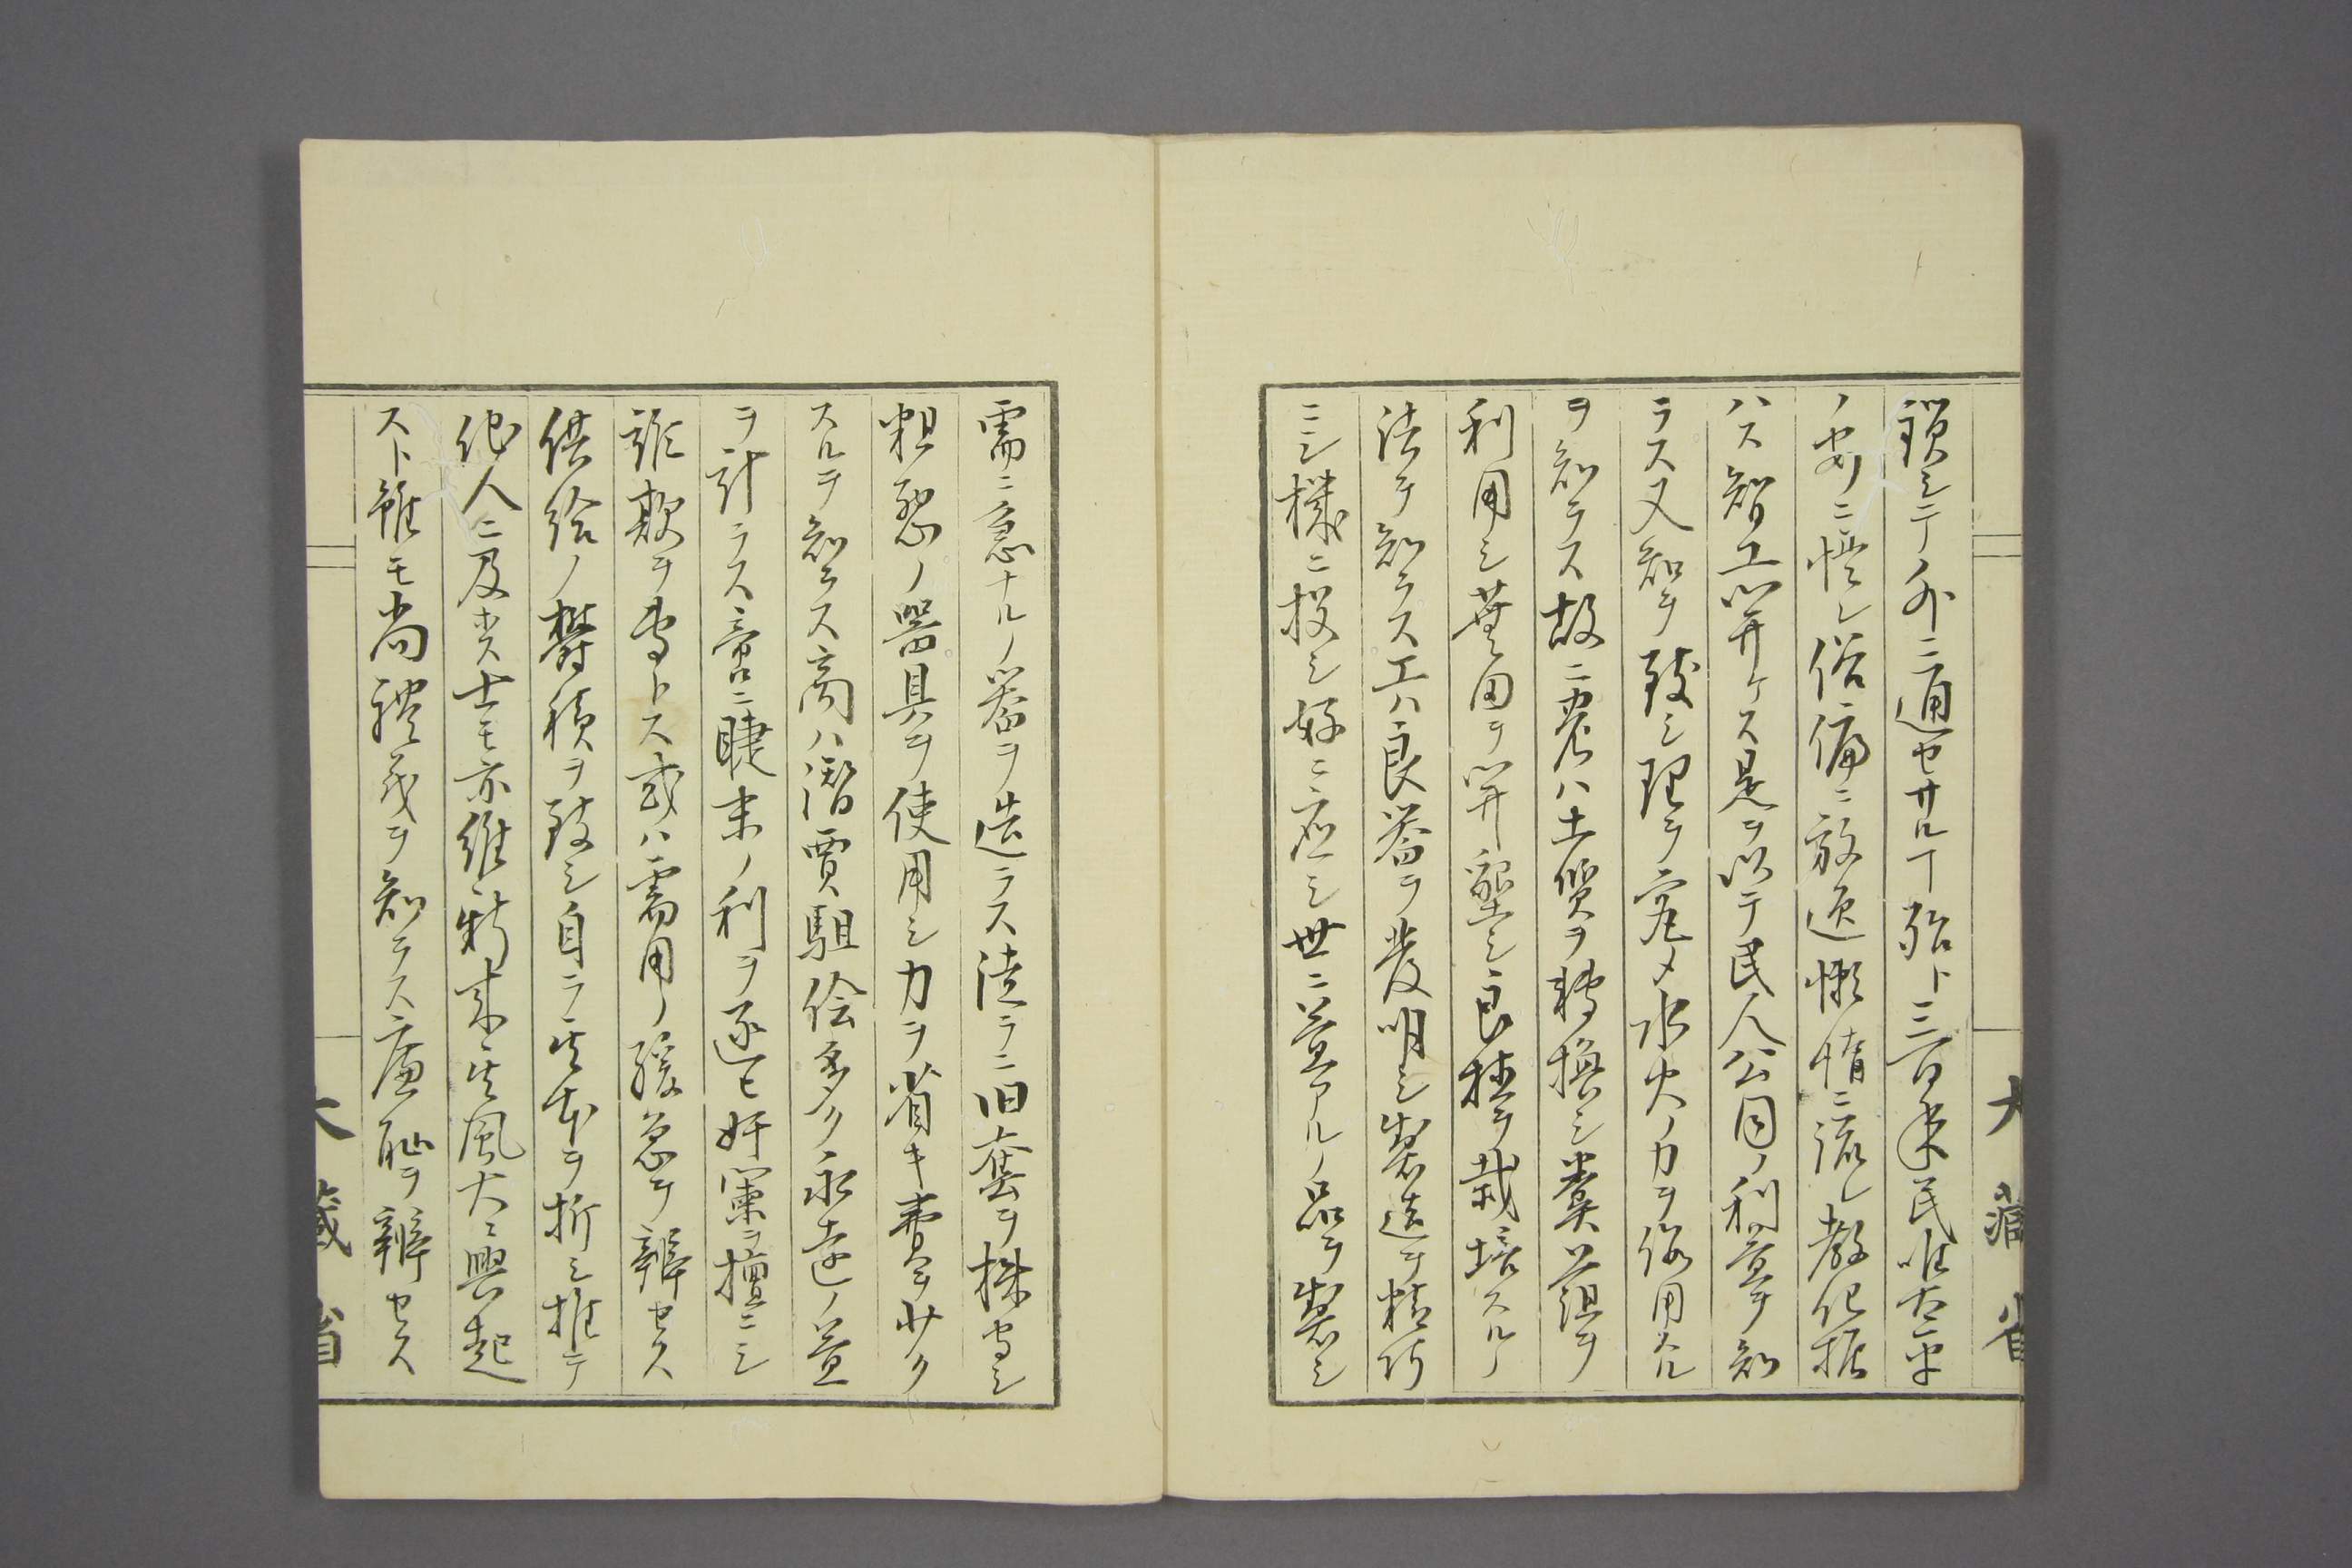 鎖シテ外ニ通セサルヿ殆ト三百年民唯太平
ノ安ニ慣レ俗偏ニ放逸懶惰ニ流レ教化振
ハス智工開ケス是ヲ以テ民人公同ノ利益ヲ知
ラス又知ヲ致シ理ヲ究メ水火ノ力ヲ仮用スル
ヲ知ラス故ニ農ハ土質ヲ転換シ糞苴ヲ
利用シ蕪田ヲ開墾シ良種ヲ栽培スルノ
法ヲ知ラス工ハ良器ヲ發明シ製造ヲ精巧
ニシ機ニ投シ好ニ応シ世ニ益アルノ品ヲ製シ
需ニ急ナルノ器ヲ造ラス徒ラニ旧套ヲ株守シ
粗悪ノ器具ヲ使用シ力ヲ省キ費ヲ少ク
スルヲ知ラス商ハ潜賈駔儈多ク永遠ノ益
ヲ計ラス啻ニ睫末ノ利ヲ逐ヒ奸闌ヲ擅ニシ
詐欺ヲ専トス或ハ需用ノ緩急ヲ辨セス
供給ノ欝積ヲ致シ自ラ其本ヲ折シ推テ
他人ニ及ホス士モ亦維新来其風大ニ興起
スト雖モ尚禮義ヲ知ラス廉恥ヲ辨セス
大藏省
大藏省